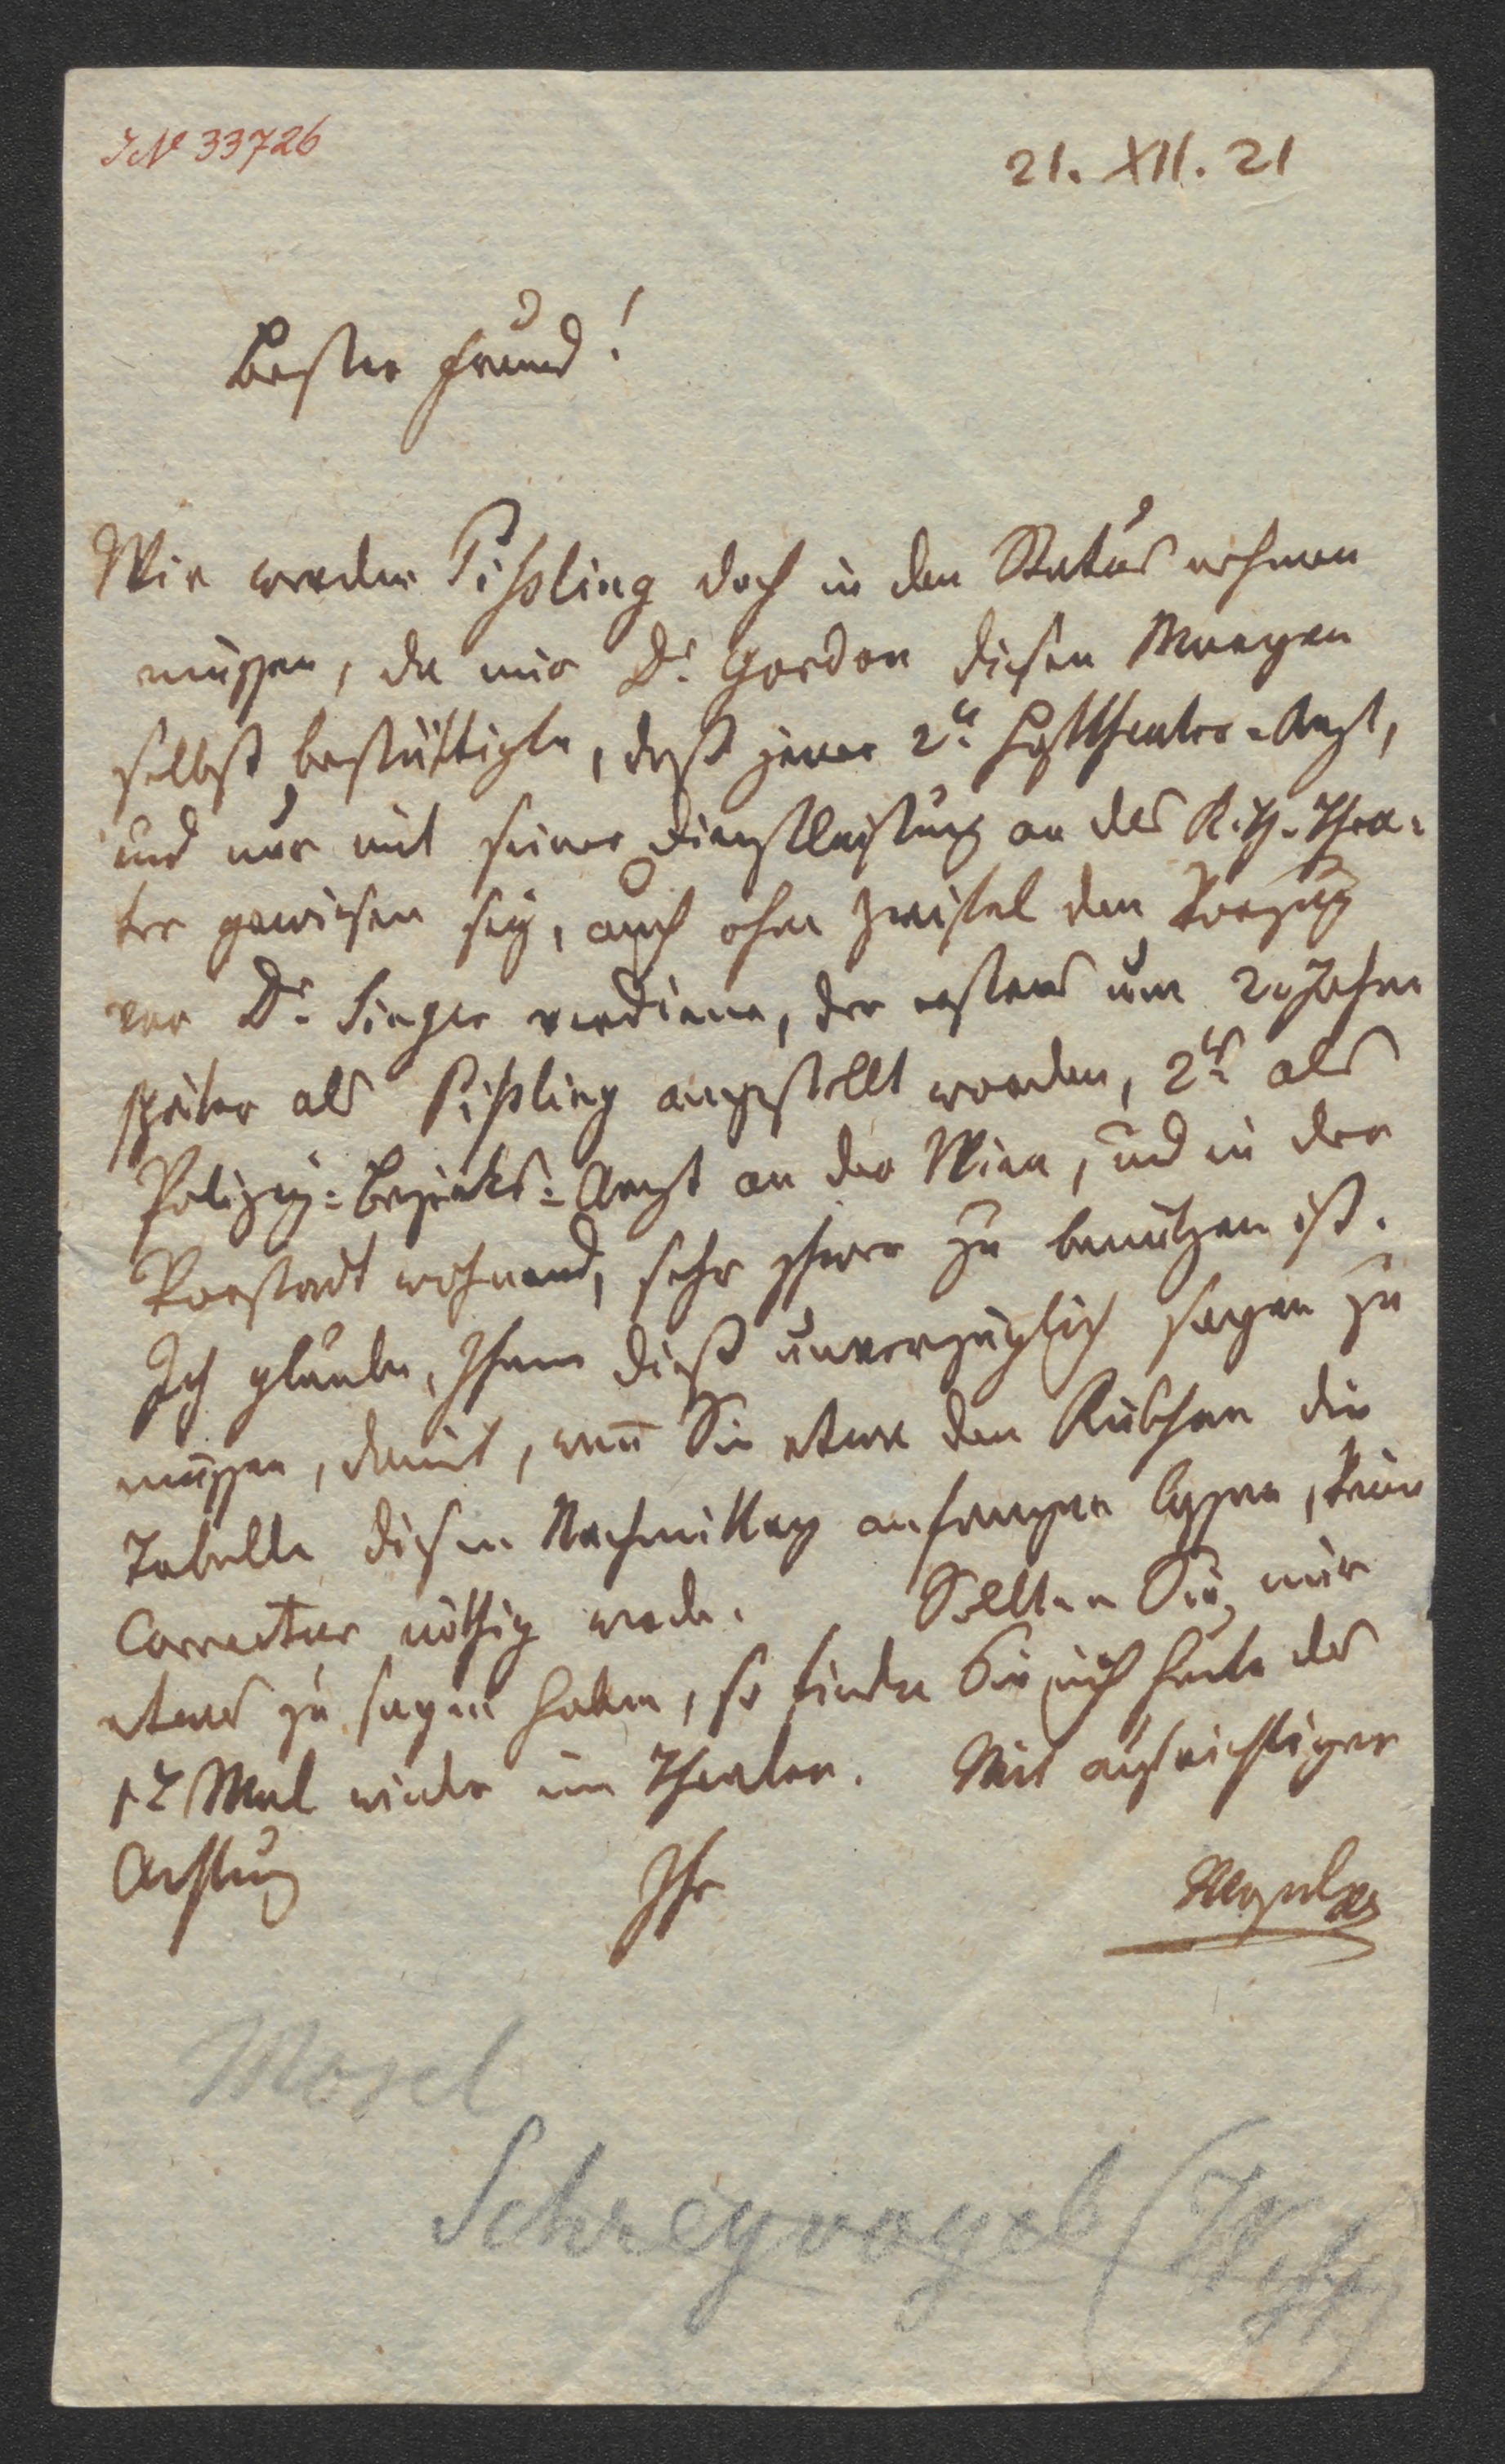 IN 33726
21. XII. 21
Bester Freund!
Wir werden Pißling doch in den Status nehmen
müssen, da mir Dr. Gordon diesen Morgen
selbst bestättigte, daß jener 2ter Hoftheater-Arzt,
und nur mit seiner Dienstleistung an das K. th. Thea-
ter gewiesen sey, auch ohne Zweifel den Vorzug
vor Dr. Singer verdiene, der erstens um 20 Jahre
später als Pißling angestellt worden, 2tens als
Polizey-Bezirks-Arzt an der Wien, und in der
Vorstadt wohnend, sehr schwer zu benützen ist.
Ich glaube, Ihnen dieß unverzüglich sagen zu
müssen, damit, wenn Sie etwa den die
Tabelle diesen Nachmittag anfangen lassen, keine
Correctur nöthig werde. Sollten Sie mir
etwas zu sagen haben, so finden Sie mich heute das
1te Mal wieder im Theater. Mit aufrichtiger
Achtung Ihr Mosel
Mosel
Schreyvogel (West)